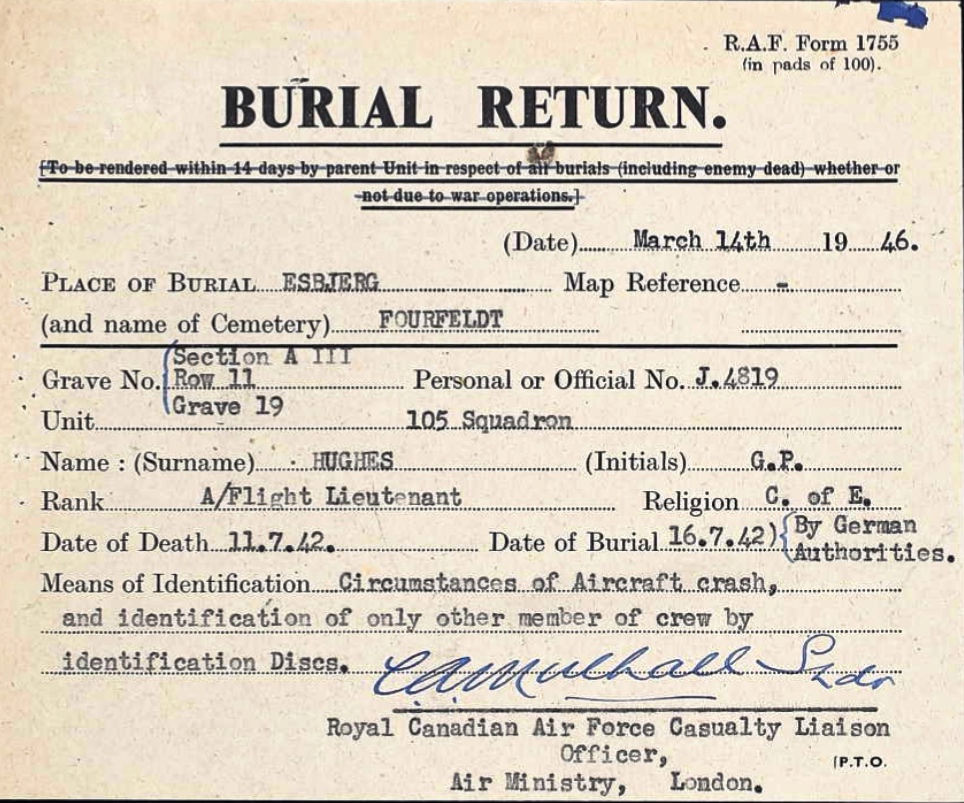 R.A.F. Form 1755
(in pads of 100).
BURIAL RETURN.
[To be rendered within 14 days by parent Unit in respect of all burials (including enemy dead) whether or
not due to war operations.]
(Date) March 14th 19 46.
PLACE OF BURIAL ESBJERG Map Reference -
(and name of Cemetery) FOURFELDT
Section A III
Grave No. Row 11 Personal or Official No. J.4819
Grave 19
Unit 105 Squadron
Name : (Surname) HUGHES (Initials) G.P.
Rank A/Flight Lieutenant Religion C. of E.
Date of Death 11.7.42. Date of Burial 16.7.42) {By German
Authorities.
Means of Identification Circumstances of Aircraft crash,
and identification of only other member of crew by
identification Discs. CAMulhall S/Ldr
Royal Canadian Air Force Casualty Liaison
Officer,
(P.T.O.
Air Ministry, London.